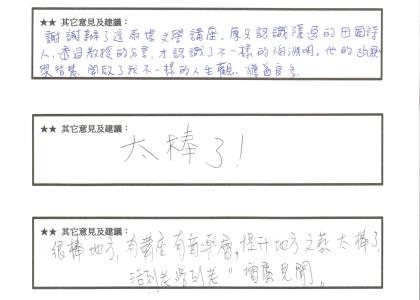 ★★ 其它意見及建議：
謝謝辦了這兩場文學講座，原只認識隱逸的田園詩
人，透過教授的分享，才認識了不一樣的陶淵明。他的幽默
與智慧，開啟了我不一樣的人生觀，獲益良多
★★ 其它意見及建議：
太棒了！
★★ 其它意見及建議：
很棒地方，有講座有音樂會，提升地方文藝太棒了
活到老學到老"增廣見聞"